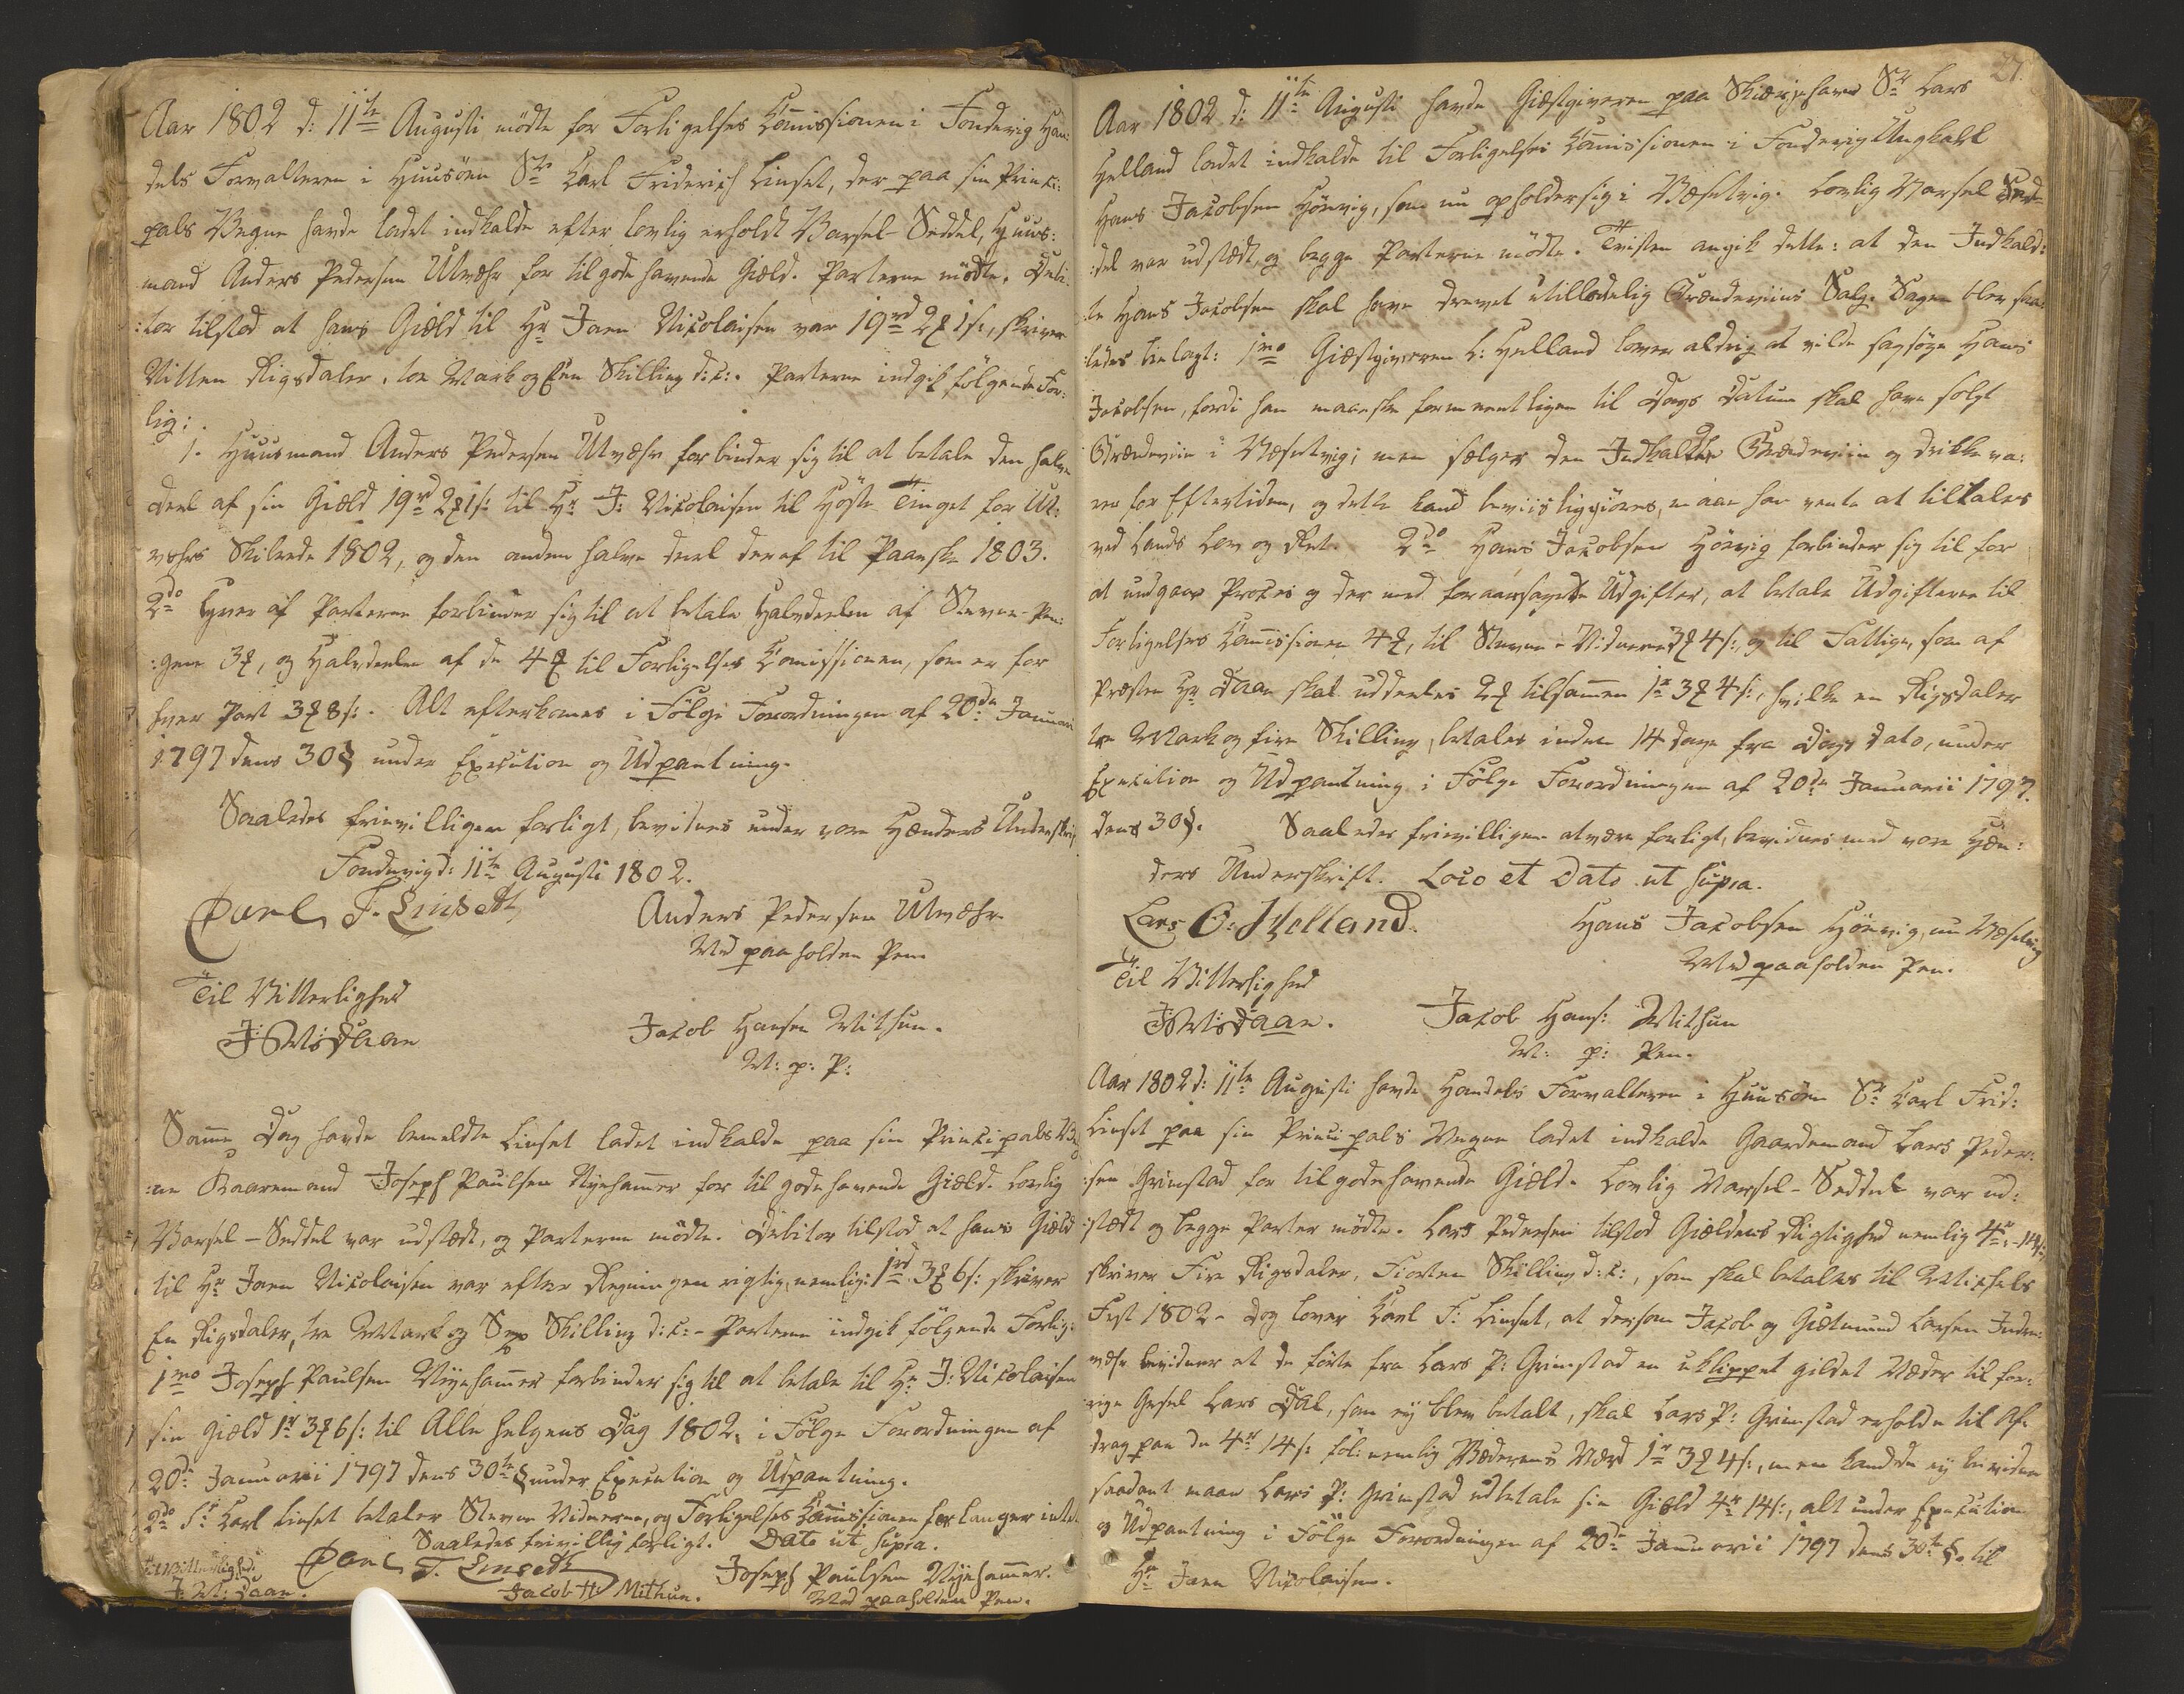 Aar 1802 d: 11te Augusti mödte for Forligelses Commissionen i Fondevig Han-
dels Forvalteren i Huusöen Sr Carl Friderich Linset, der paa sin Princi:
pals Vegne havde ladet indkalde efter lovlig erholdt Varsel-Seddel, Huus:
mand Anders Pedersen Utvæhr for tilgode havende Giæld. Parterne mödte. Debi:
:tor tilstod at hans Giæld til Hr Jaen Nicolaisen var 19rd 2 1s:, skriver
Nitten Rigsdaler, toe Mark og Een Skilling d: c:. Parterne indgik fölgende For:
lig:
1. Huusmand Anders Pedersen Utvæhr forbinder sig til at betale den halve
Deel af sin Giæld 19rd 2 1s: til Hr J: Nicolaisen til Höste Tinget for Ut:
vehrs Skibrede 1802, og den anden halve deel deraf til Paaske 1803.
2do Hver af Parterne forbinder sig til at betale Halvdeelen af Stevne-Pen:
:gene 3, og Halvdeelen af de 4 til Forligelses Comissionen, som er for
hver Part 3 8s:. Alt efterkomes i Fölge Forordningen af 20de Januari
1797 dens 30§ under Execution og Udpantning.
Saaledes frievilligen forligt, bevidnes under vore Hænders Underskrif
Fondevig d: 11te Augusti 1802.
Carl F. Linsett
Anders Pedersen Utvæhr
Med paaholden Pen
Til Vitterlighed
J: M: Daae
Jacob Hansen Mithun.
M: p: P:
Samme Dag havde bemeldte Linset ladet indkalde paa sin Principals Veg
:ne Baaremand Joseph Paulsen Nyehamer for til gode havende Giæld. Lovlig
Varsel-Seddel var udstædt, og Parterne mödte. Debitor tilstod at hans Giæld
til Hr Jaen Nicolaisen var efter Regningen rigtig, nemlig: 1rd 3 6s: skriver
En Rigsdaler, tre Mark og Sex Skilling d: c:- Parterne indgik fölgende Forlig:
1mo Joseph Paulsen Nyehamer forbinder sig til at betale til Hr J: Nicolaisen
sin Giæld 1r 3 6s: til Alle helgens Dag 1802, i Fölge Forordningen af
20de Januarii 1797 dens 30te § under Execution og Udpantning.
2do Sr Carl Linset betaler Stevne Vidnerne, og Forligelses Comissionen forlanger intet.
Saaledes frivillig forligt. Dato ut supra.
til Vitterlighed:
Carl F. Linsett
Joseph Paulsen Nyehamer.
J: M: Daae.
Jacob H: Mithun.
Med paaholden Pen.
27.
Aar 1802 d: 11te Augusti havde Giæstgiveren paa Skierjehavn Sr Lars
Helland ladet indkalde til Forligelses Comissionen i Fondevig Ungkarl
Hans Jacobsen Hönvig, som nu opholder sig i Næsetvig. Lovlig Varsel Sed-
:del var udstædt, og begge Parterne mödte. Tvisten angik dette: at den Indkald:
te Hans Jacobsen skal have drevet utilladelig Brændeviins Salg. Sagen blev saa:
ledes bielagt: 1mo Giæstgiveren L: Helland lover aldrig at vilde sagsöge Hans
Jacobsen, fordi han maaske formeentligen til Dags Datum skal have solgt
Brændeviin i Næsetvig; men sælger den Indkaldte Brændeviin og drikke va:
rer for Eftertiden, og dette kand beviisliggiöres, maae han vente at tiltales
ved Lands Lov og Ret. 2do Hans Jacobsen Hönvig forbinder sig til for
at undgaae Proces og der med foraarsagede Udgifter, at betale Udgifterne til
Forligelses Comissionen 4, til Stevne-Vidnerne 3 4s:, og til Fattige, som af
Præsten Hr Daae skal uddeeles 2 tilsamen 1r 3 4s:, hvilke en Rigsdaler
tre Mark og fire Skilling, betales inden 14 dage fra Dags Dato, under
Execution og Udpantning i Fölge Forordningen af 20de Januarii 1797.
dens 30§. Saaledes frievilligen at være forligt, bevidnes med vore Hæn:
ders Underskrift. Loco et Dato ut supra.
Lars O: Helland.
Hans Jacobsen Hönvig, nu Næsetvig
Med paaholden Pen.
Til Vitterlighed
J: M: Daae.
Jacob Hans: Mithun
M: p: Pen.
Aar 1802 d: 11te Augusti havde Handels Forvalteren i Huusöen Sr Carl Frid:
Linset paa sin Principals Vegne ladet indkalde Gaardmand Lars Peder:
:sen Grimstad for tilgodehavende Giæld. Lovlig Varsel-Seddel var ud:
:stædt og begge Parter mödte. Lars Pedersen tilstod Giældens Rigtighed nemlig 4r - 14s:
skriver Fire Rigsdaler, Fiorten Skilling d: c:, som skal betales til Michels
Fest 1802 - dog lover Carl F: Linset, at dersom Jacob og Giætmund Larsen Inden:
væhr bevidner at de förte fra Lars P: Grimstad en uklippet gildet Væder til for:
rige Gesel Lars Dal, som ej blev betalt, skal Lars P: Grimstad erholde til Af:
drag paa de 4r 14s: föl: nemlig Væderens Værd 1r 3 4s:, men kand de ej bevidne
saadant maae Lars P: Grimstad udbetale sin Giæld 4r 14s:, alt under Execution
og Udpantning i Fölge Forordningen af 20de Januarii 1797 dens 30te §. til
Hr Jaen Nicolaisen.